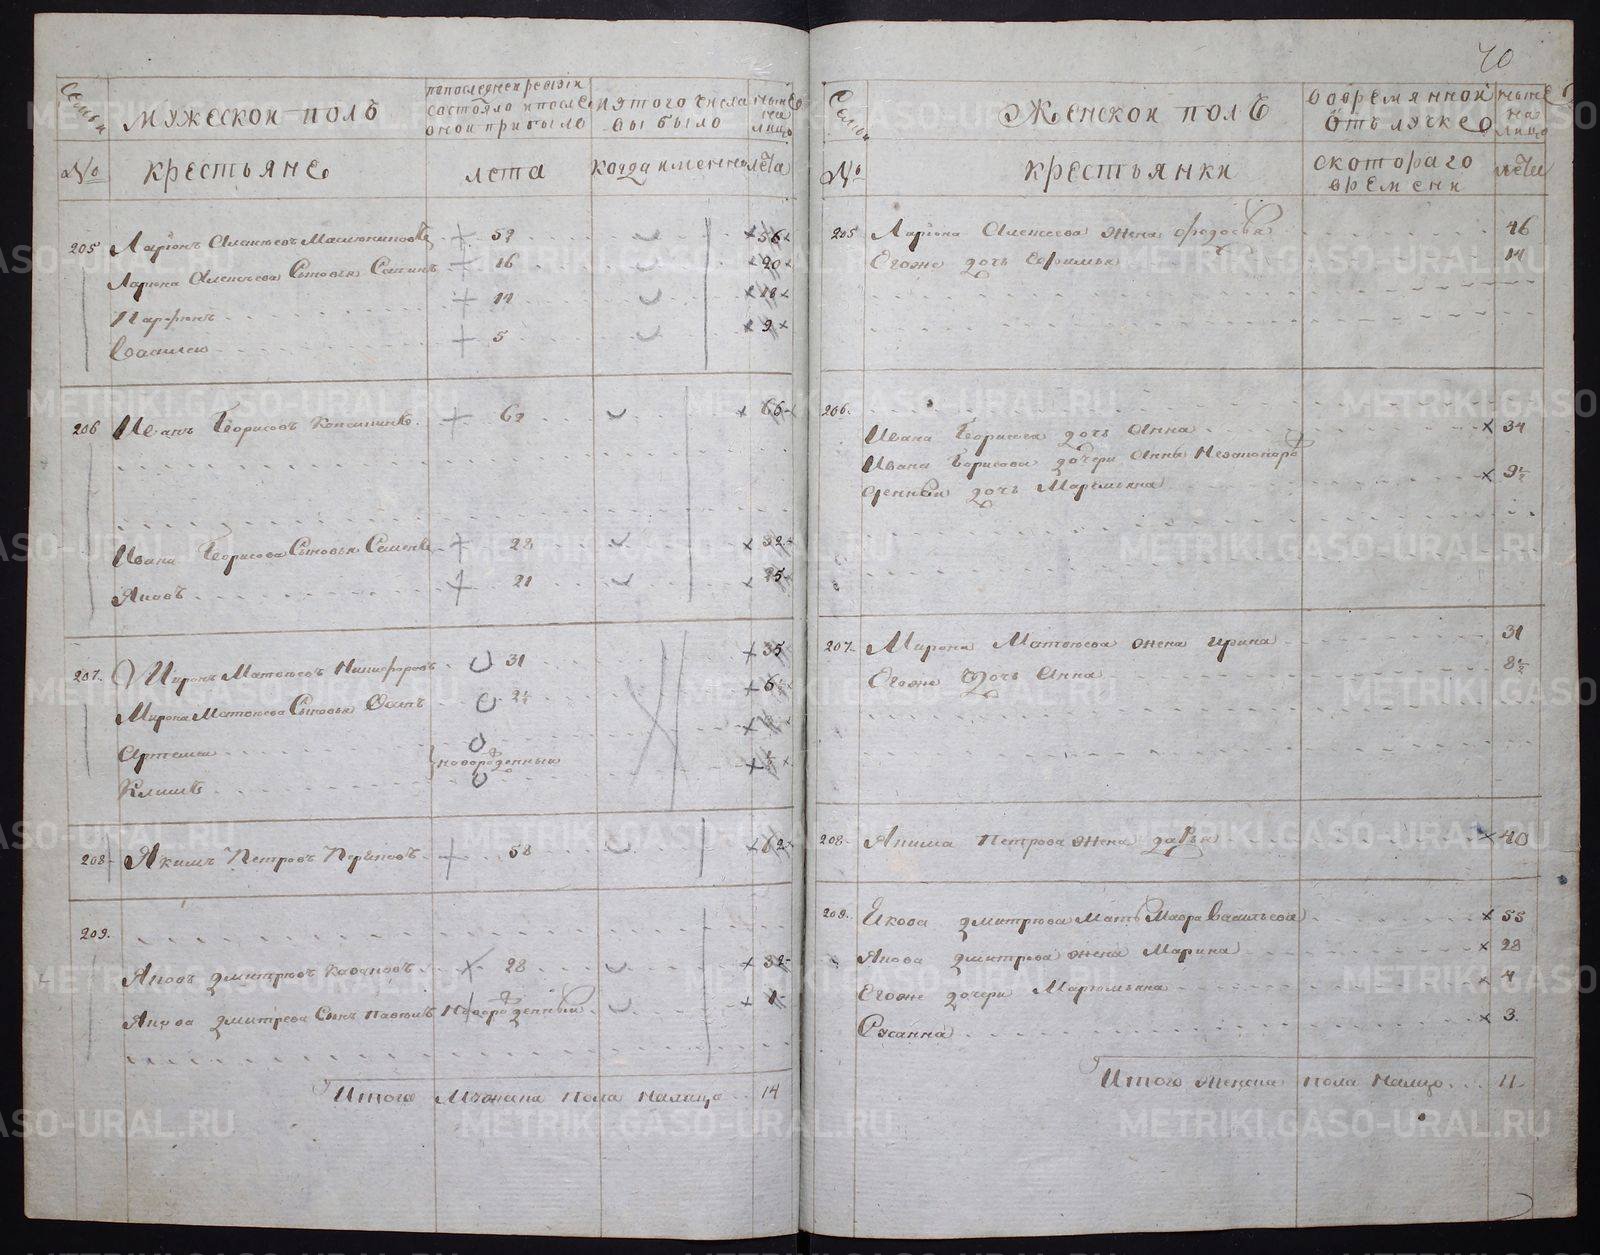 70
Семьи
МУЖЕСКОЙ ПОЛЪ
попоследней ревизіи
состояло и после
оной прибыло
изтого числа
выбыло
ныне
на
лицо
№
КРЕСТЬЯНЕ
лета
когда именно
лета
205
Ларіонъ Алексеевъ
52
56
Ларіона Алексеева Сыновья
16
20
Парфенъ
18
Василей
5
9
206
Иванъ Борисовъ
62
66
Ивана Борисова Сыновья Семенъ
28
32
Яковъ
21
25
207
Миронъ Матвеевъ Никифоровъ
31
35
Мирона Матвеева Сыновья Осипъ
2½
6½
Артемей
новорожденныя
Климъ
208
Якимъ Петровъ
58
62
209
Яковъ Дмитревъ
28
32
Якова Дмитрева Сынъ Павелъ Новорожденный
1
Итого Мужска пола налицо
14
Семьи
ЖЕНСКОЙ ПОЛЪ
вовремянной
отълучке
ныне
на
лицо
№
КРЕСТЬЯНКИ
скотораго
времени
лета
205
Ларіона Алексеева жена Федосья
46
Егоже дочь Ефимья
14
206
Ивана Борисова дочь Анна
34
Ивана Борисова дочери Анны Незаконорож
денная дочь Маремьяна
9½
207
Мирона Матвеева жена Ирина
31
Егоже дочь Анна
8½
208
Якима Петрова жена Дарья
40
209
Якова Дмитрева Мать Мавра Васильева
55
Якова Дмитрева жена Марина
28
Егоже дочери Маремьяна
4
3
Итого женска пола налицо
11
METRIKI.GASO-URAL.RU